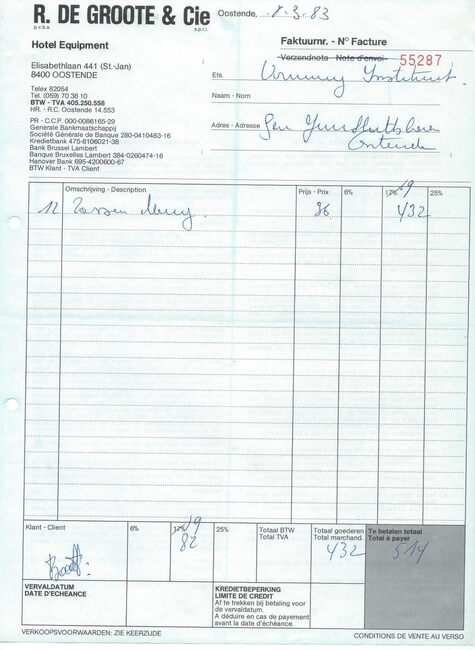 R. DE GROOTE & Cie
p.v.b.a. s.p.r.l.
Oostende, 8.3.83
Hotel Equipment
Faktuurnr. - N° Facture
Verzendnota - Note d'envoi 55287
Elisabethlaan 441 (St.-Jan)
8400 OOSTENDE
Ets. Instituut
Telex 82054
Tel. (059) 70 38 10
BTW - TVA 405.250.558
HR. - R.C. Oostende 14.553
Naam - Nom
PR - C.C.P. 000-0086165-29
Generale Bankmaatschappij
Société Générale de Banque 280-0410483-16
Kredietbank 475-8106021-38
Bank Brussel Lambert
Banque Bruxelles Lambert 384-0260474-16
Hanover Bank 695-4200600-67
BTW Klant - TVA Client
Adres - Adresse
Oostende
Omschrijving - Description Prijs - Prix 6% 17% 19 25%
12 36 432
Klant - Client 6% 17% 19 25% Totaal BTW Totaal goederen Te betalen totaal
Total TVA Total marchand. Total à payer
82 432 514
VERVALDATUM
DATE D'ECHEANCE
KREDIETBEPERKING
LIMITE DE CREDIT
Af te trekken bij betaling voor
de vervaldatum.
A déduire en cas de payement
avant la date d'échéance.
VERKOOPSVOORWAARDEN: ZIE KEERZIJDE CONDITIONS DE VENTE AU VERSO